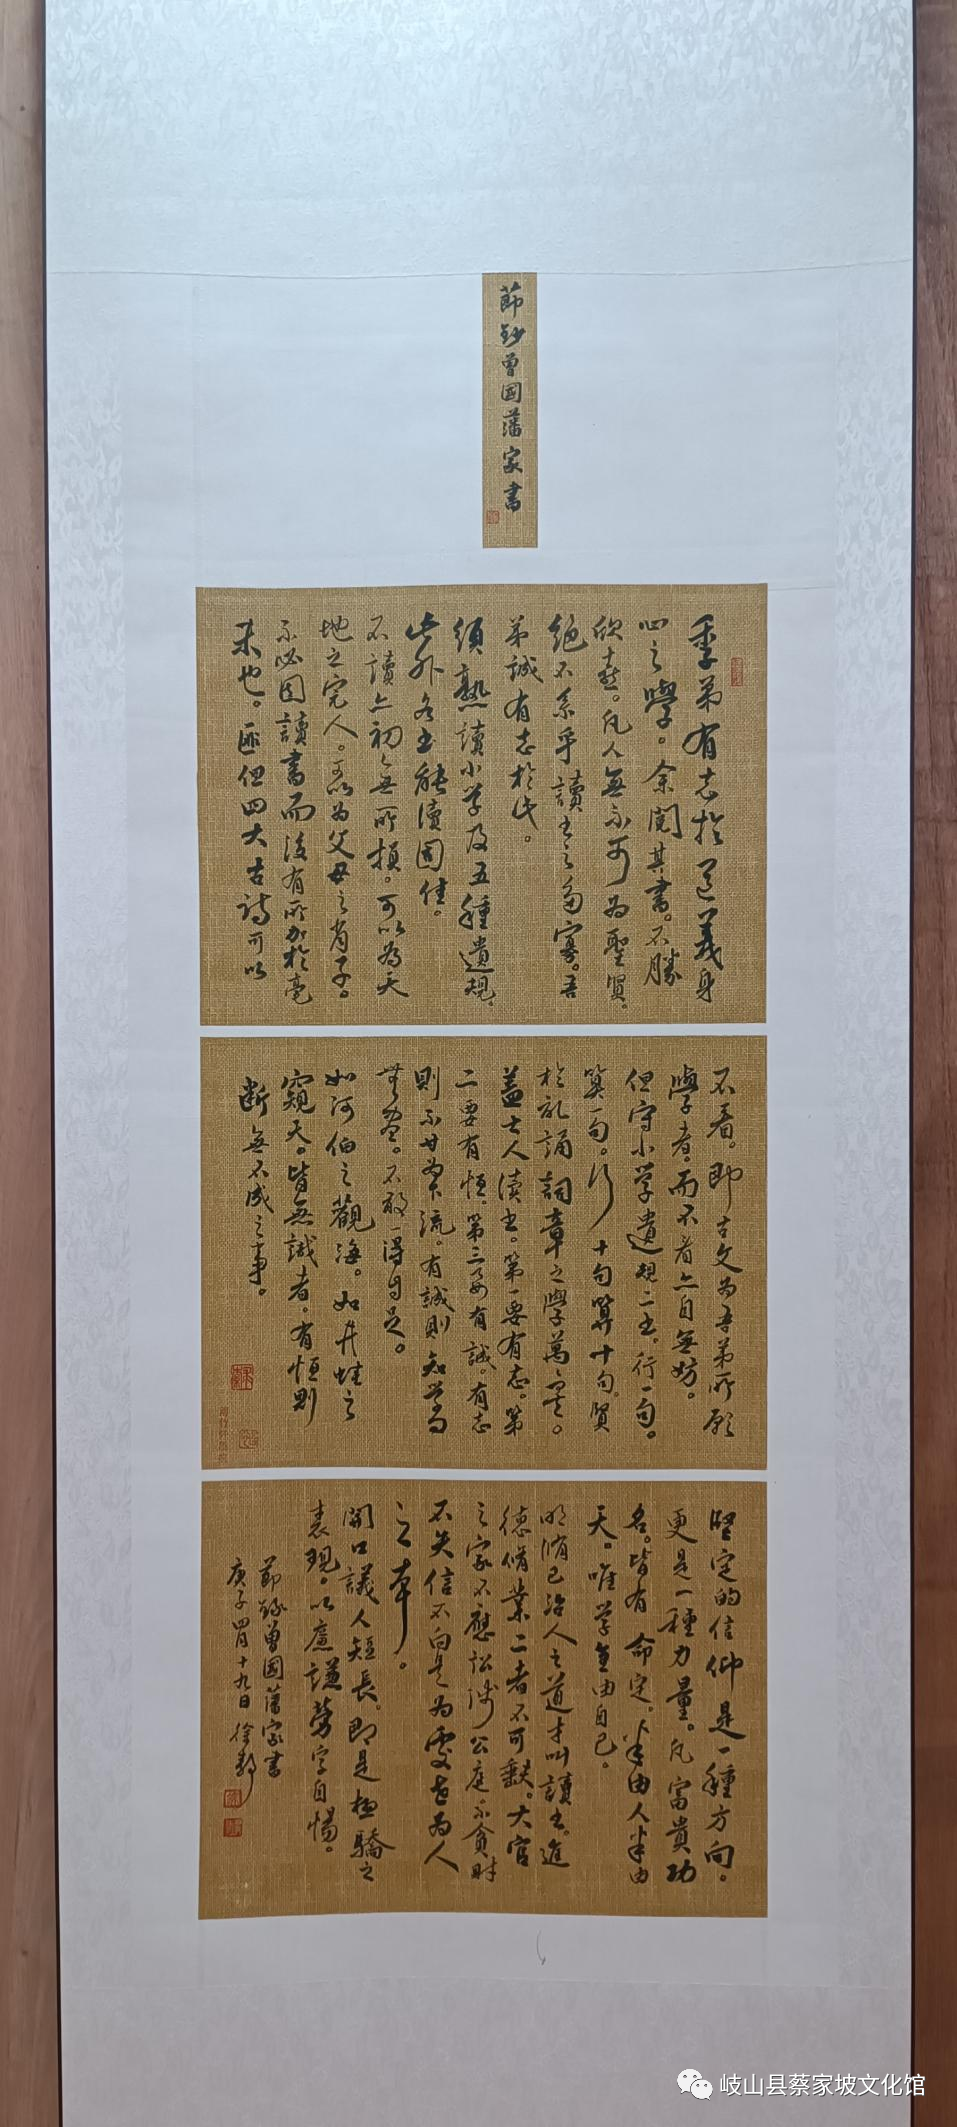 節鈔曾國藩家書
季弟有志於道義身
心之學。余閱其書。不勝
欣喜。凡人無不可為聖賢。
絕不系乎讀書之多寡。吾
弟誠有志於此。
須熟讀小学及五種遺規。
此外各书能讀固佳。
不讀亦初無所損。可以為天
地之完人。可以為父母之肖子。
不必因讀書而後有所加於毫
末也。匪但四大古詩可以
不看。即古文為吾弟所願
學者。而不看亦自無妨。
但守小学遺規二书。行一句。
算一句。行十句算十句。賢
於記誦詞章之學萬萬矣。
蓋士人讀书。第一要有志。第
二要有恒。第三要有誠。有志
則不甘為下流。有誠則知學問
無盡。不敢一得自足。
如河伯之觀海。如井蛙之
窺天。皆無識者。有恒則
斷無不成之事。
堅定的信仰是一種方向。
更是一種力量。凡富貴功
名。皆有命定。半由人半由
天。唯学業由自己。
明脩己治人之道才叫讀书。進
德脩業二者不可缺。大官
之家不應訟涉公庭不貪財
不失信不自是為處世為人
之本。
開口議人短長。即是極驕之
表現。以廉謙勞字自惕。
節錄曾國藩家書
庚子四月十九日徐
岐山县蔡家坡文化馆